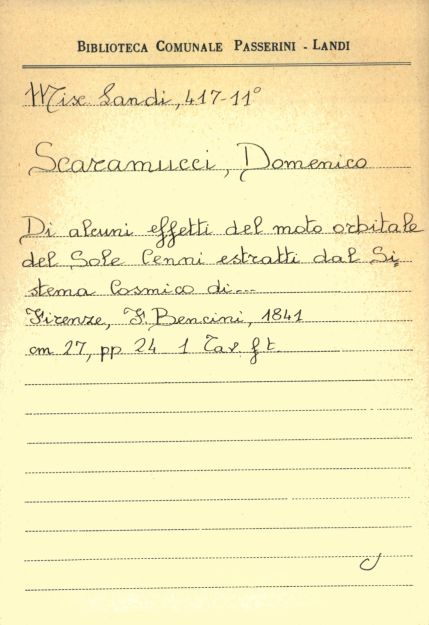 BIBLIOTECA COMUNALE PASSERINI - LANDI
Misc Landi, 417-11°
Scaramucci, Domenico
Di alcuni effetti del moto orbitale
del Sole Cenni estratti dal Si=
stema Cosmico di...
Firenze, F. Bencini, 1841
cm 27, pp 24 1 Tav. f t.